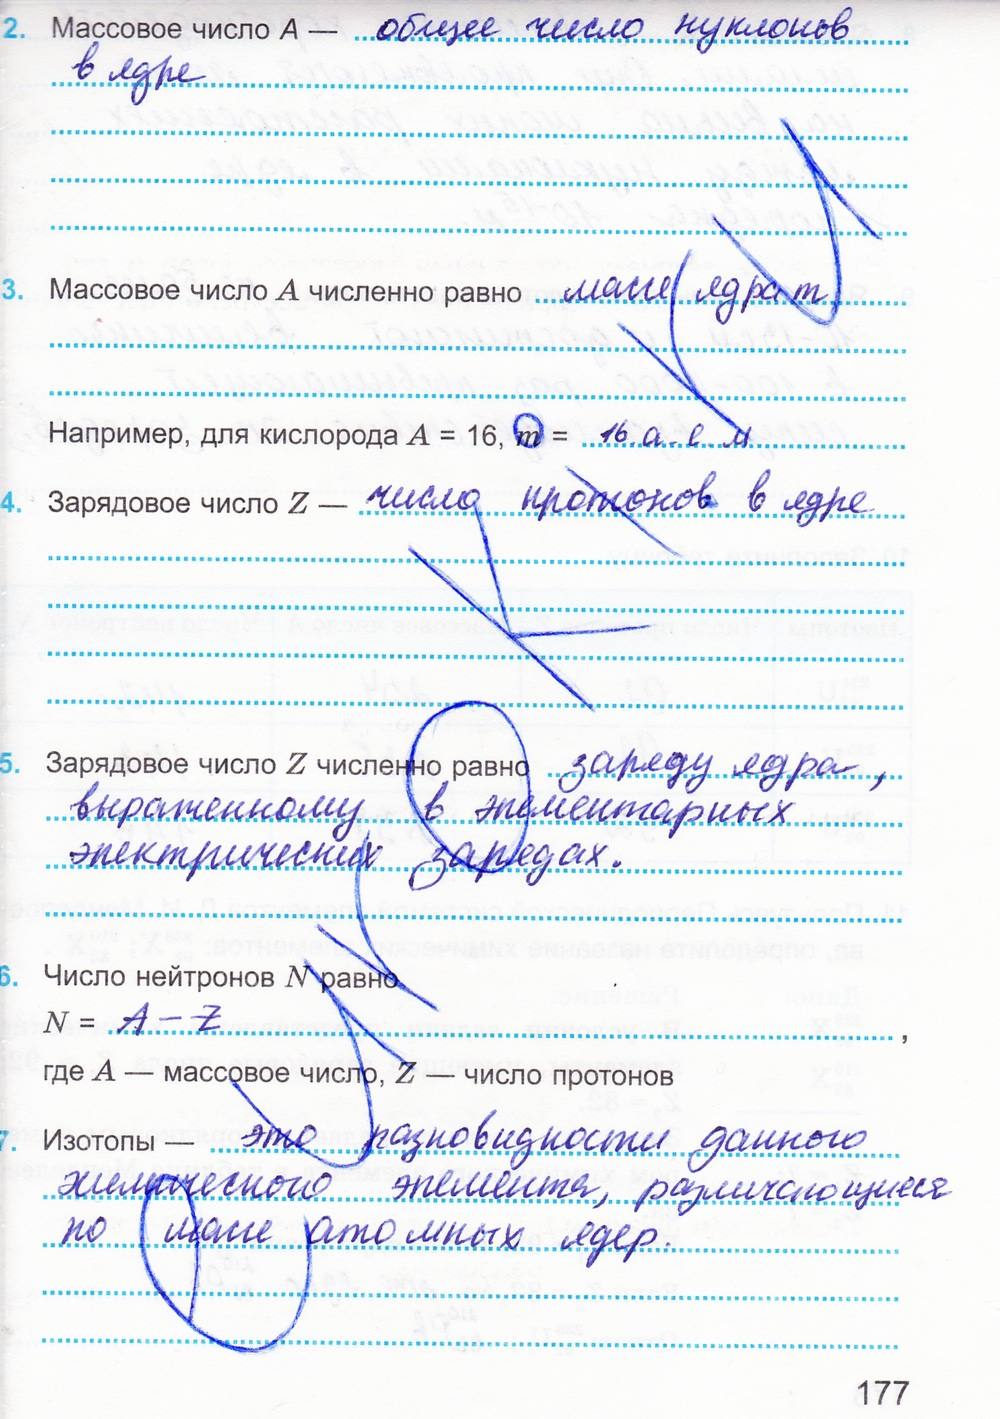 2. Массовое число A — общее число нуклонов
в ядре
3. Массовое число A численно равно массе ядра m
Например, для кислорода A = 16, m = 16 а. е. м
4. Зарядовое число Z — число протонов в ядре
5. Зарядовое число Z численно равно заряду ядра,
выраженному в элементарных
электрических зарядах.
6. Число нейтронов N равно
N = A – Z,
где A — массовое число, Z — число протонов
7. Изотопы — это разновидности данного
химического элемента, различающиеся
по массе атомных ядер.
177